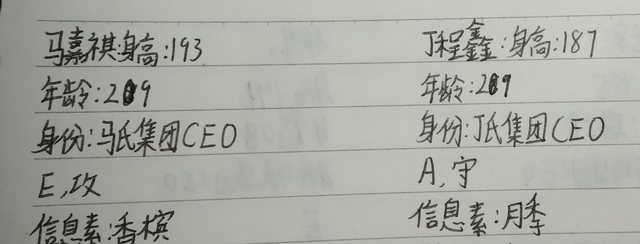 马嘉祺:身高:193
年龄:29
身份:马氏集团CEO
E,攻
信息素:香槟
丁程鑫:身高:187
年龄:29
身份:丁氏集团CEO
A,守
信息素:月季